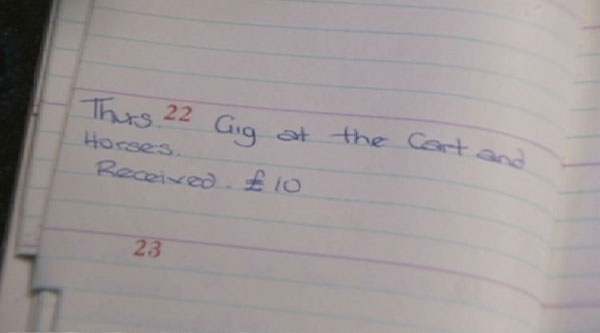 Thurs. 22 Gig at the Cart and
Horses.
Received. £10
23